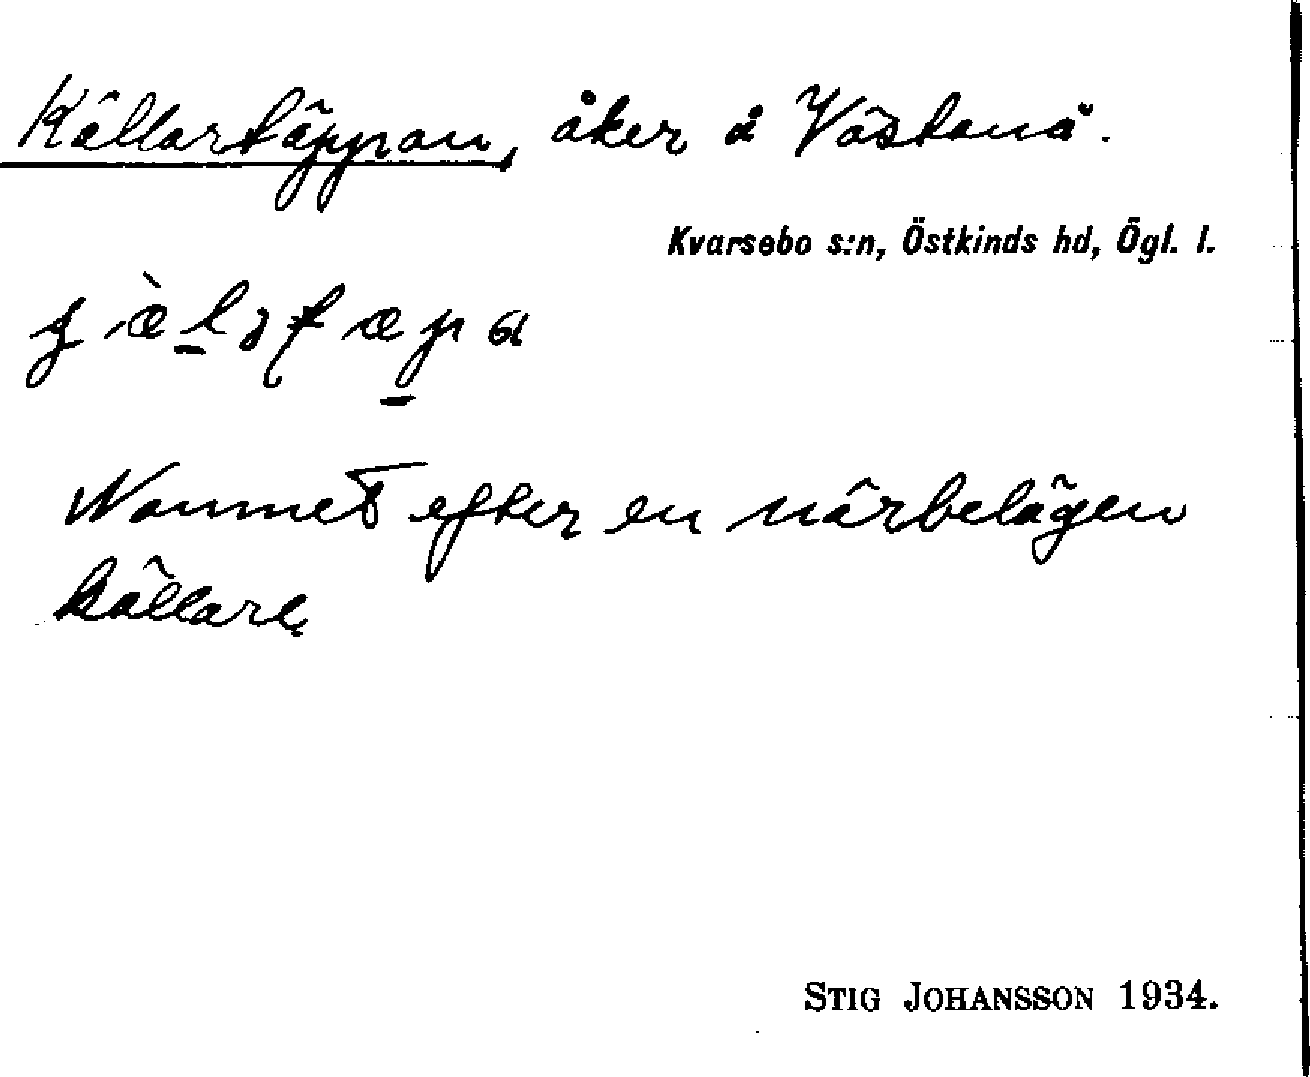 Källartäppan, åker å Västanå.
Kvarsebo s:n, Östkinds hd, Ögl. l.
Namnet efter en närbelägen
källare.
STIG JOHANSSON 1934.